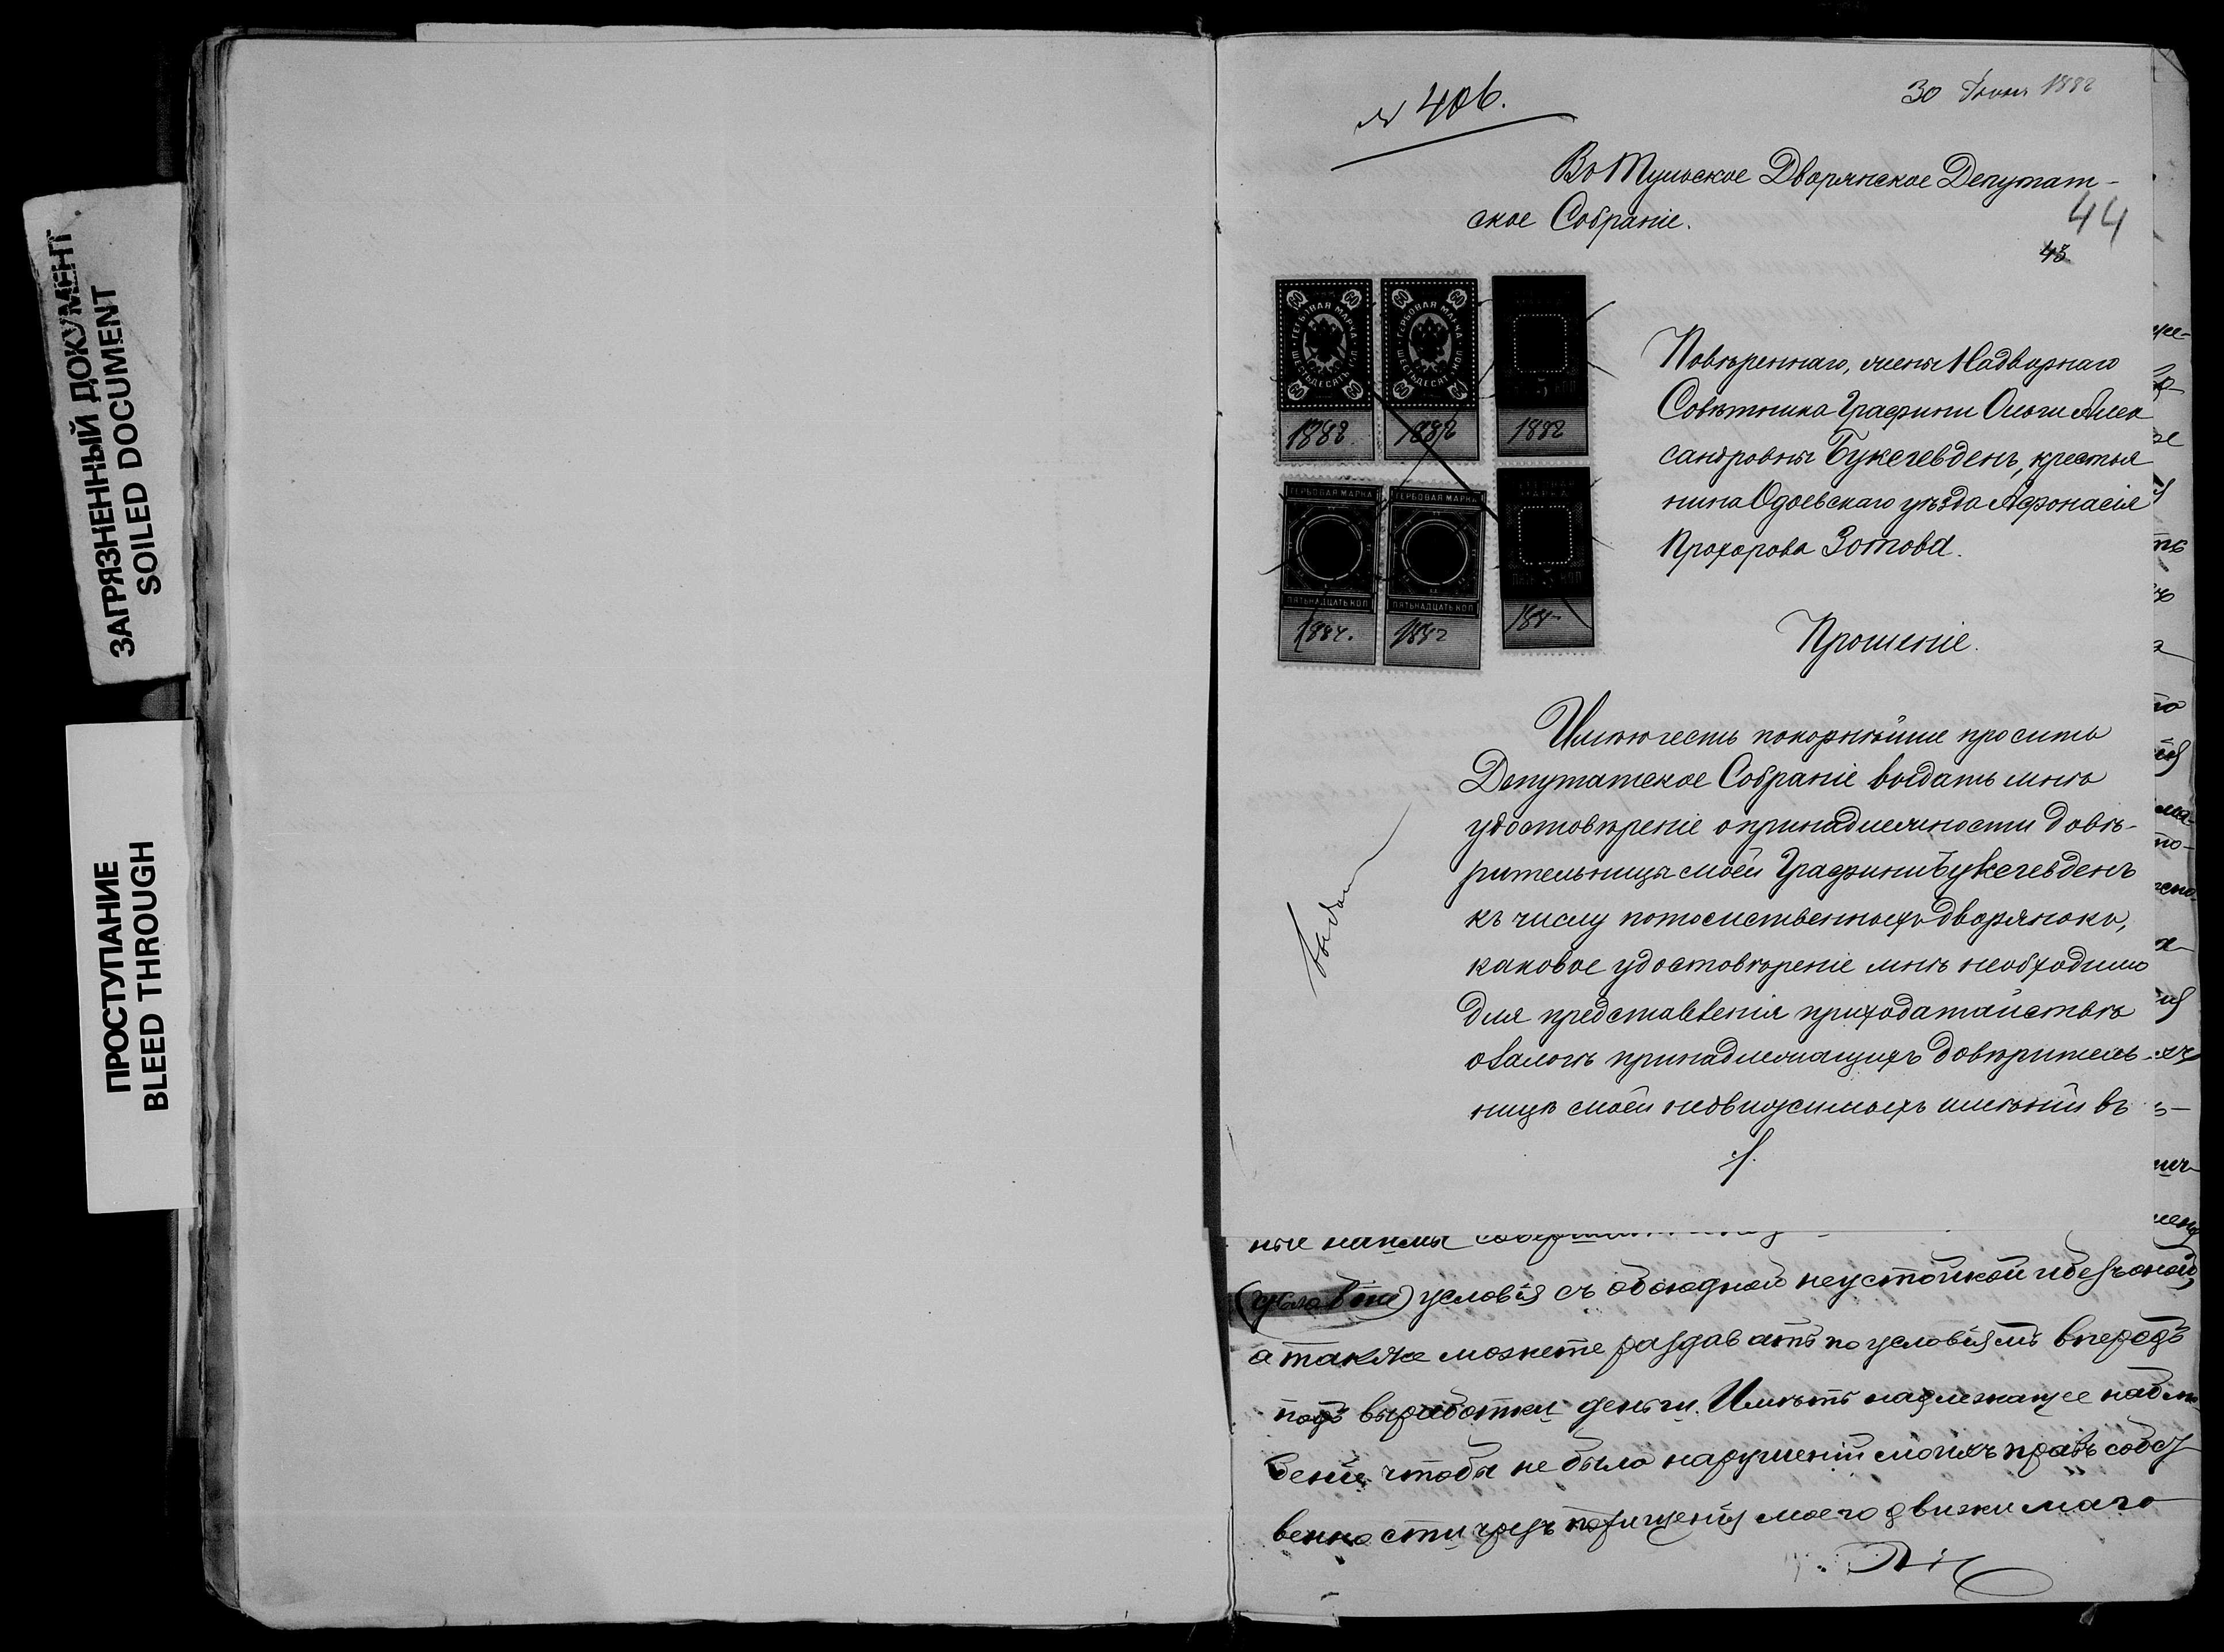 ЗАГРЯЗНЕННЫЙ ДОКУМЕНТ
SOILED DOCUMENT
ПРОСТУПАНИЕ
BLEED THROUGH
№ 406.
30 Іюня 1882
Въ Тульское Дворянское Депутат-
ское Собраніе.
44
43
ГЕРБОВАЯ МАРКА ШЕСТЬДЕСЯТЪ КОП
60
1882.
ГЕРБОВАЯ МАРКА ШЕСТЬДЕСЯТЪ КОП
60
1882
5 КОП
1882
ГЕРБОВАЯ МАРКА
ПЯТЬНАДЦАТЬ КОП
1882.
ГЕРБОВАЯ МАРКА
ПЯТЬНАДЦАТЬ КОП
1882
МАРКА
5 КОП
Повѣреннаго, жены Надворнаго
Совѣтника Графини Ольги Алек
сандровны Буксгевденъ, крестья
нина Одоевскаго уѣзда Афонасія
Прохорова Зотова.
Прошеніе.
Имѣю честь покорнѣйше просить
Депутатское Собраніе выдать мнѣ
удостовѣреніе о принадлежности довѣ-
рительницы моей Графини Буксгевденъ
къ числу потомственныхъ дворянокъ,
каковое удостовѣреніе мнѣ необходимо
для представленія при ходатайствѣ
о залогѣ принадлежащихъ довѣритель-
ницѣ моей недвижимыхъ имѣній въ
выдан
ные наймы
условія съ обоюдной неустойкой и безъ оной,
а также можете раздавать по условіямъ впередъ
подъ выработки деньги. Имѣть надлежащее наблю-
деніе чтобы не было нарушеній моихъ правъ собст
венности чрезъ похищенія моего движимаго